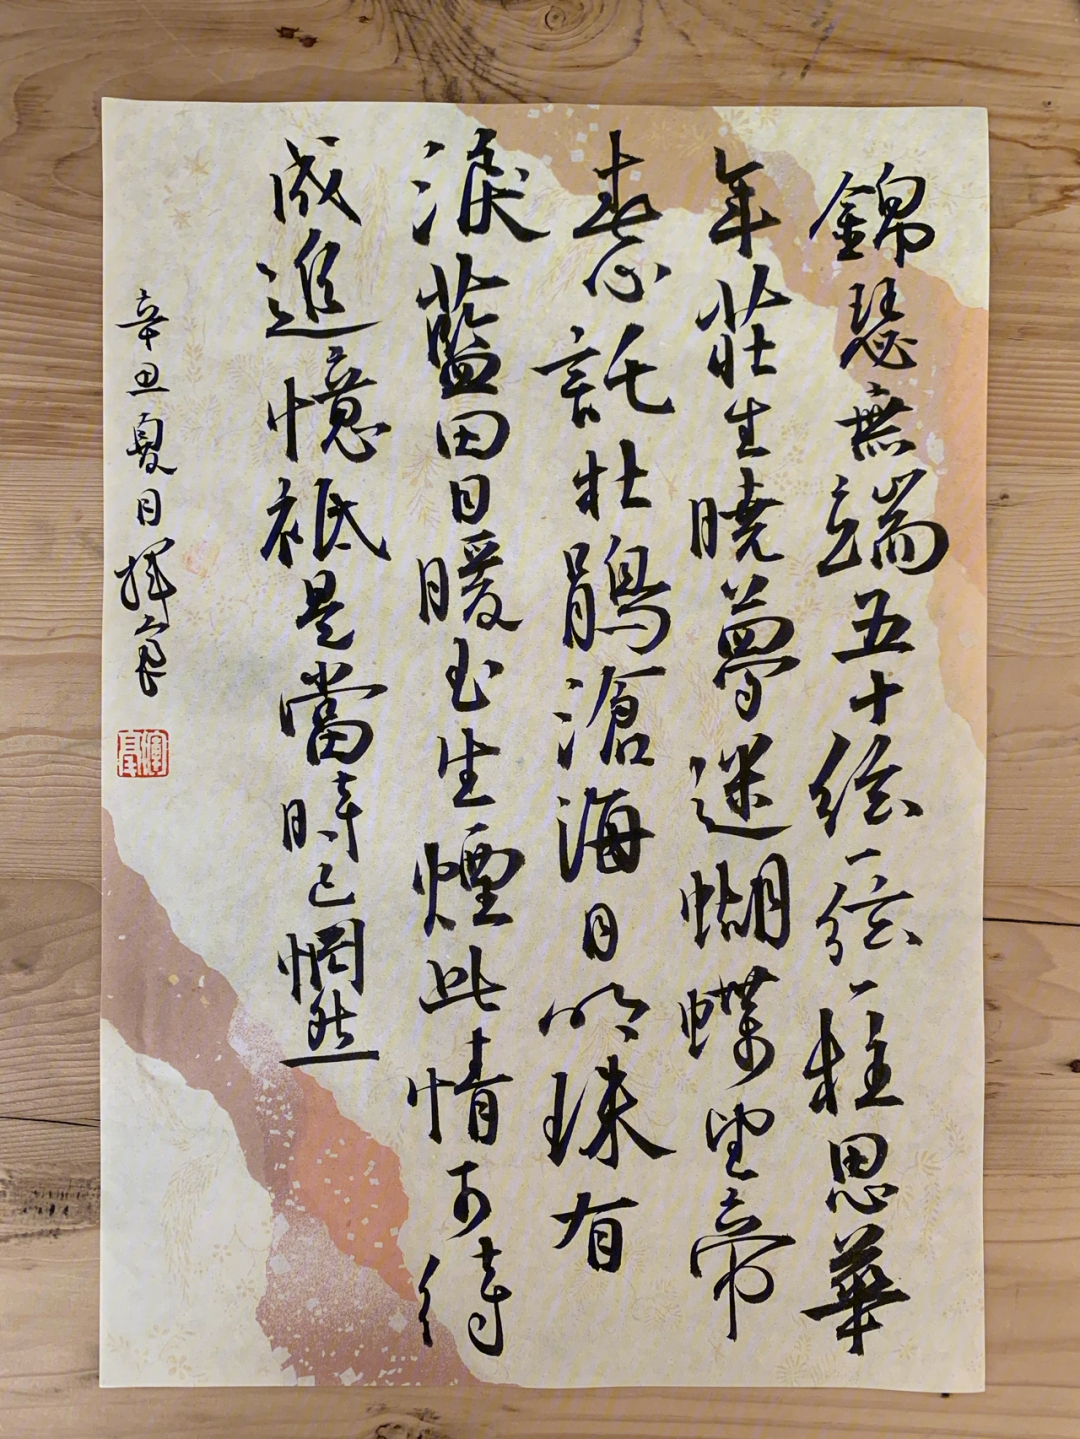 錦瑟無端五十絃一絃一柱思華
年莊生曉夢迷蝴蝶望帝
春心託杜鵑滄海月明珠有
淚藍田日暖玉生煙此情可待
成追憶祗是當時已惘然
辛丑夏日